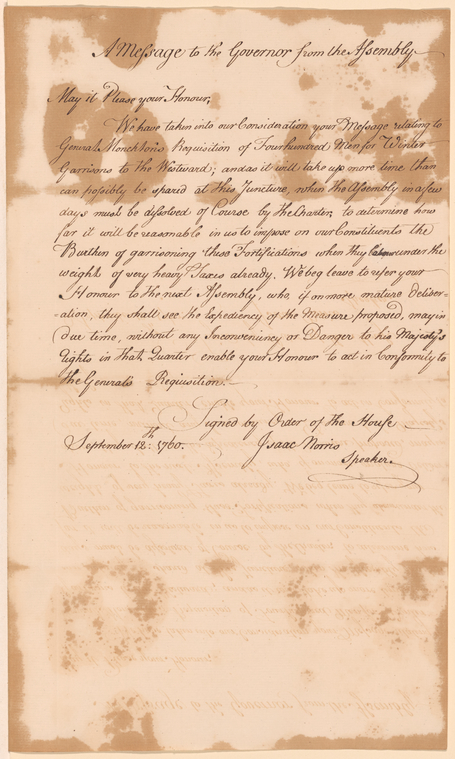 A Message to the Governor from the Assembly
May it Please your Honour,
We have taken into our Consideration your Message relating to
General Monckton's Requisition of Four hundred Men for Winter
Garrisons to the Westward; and as it will take up more time than
can possibly be spared at this Juncture, when the Assembly in a few
days must be dissolved of Course by the Charter, to determine how
far it will be reasonable in us to impose on our Constituents the
Burthen of garrisoning these Fortifications when they labour under the
weight of very heavy Taxes already. We beg leave to refer your
Honour to the next Assembly, who, if on more mature deliber-
-ation, they shall see the Expediency of the Measure proposed, may in
due time, without any Inconveniency or Danger to his Majesty's
Rights in that Quarter enable your Honour to act in Conformity to
the General's Requisition.
Signed by Order of the House
September 12th: 1760.
Isaac Norris
Speaker.